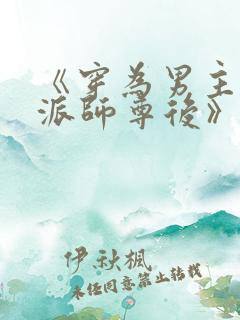 《穿為男主
派師尊後》
伊秋楓
未经同意禁止转载